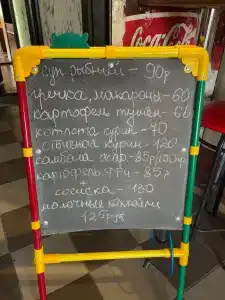 Coca-Cola
суп рыбный - 90р
гречка, макароны - 60
картофель тушён - 60
котлета курин - 70
отбивная курин - 120
камбала жар - 85р/100гр
картофель фри - 85р
+
сосиска - 130
молочные коктейли
125руб